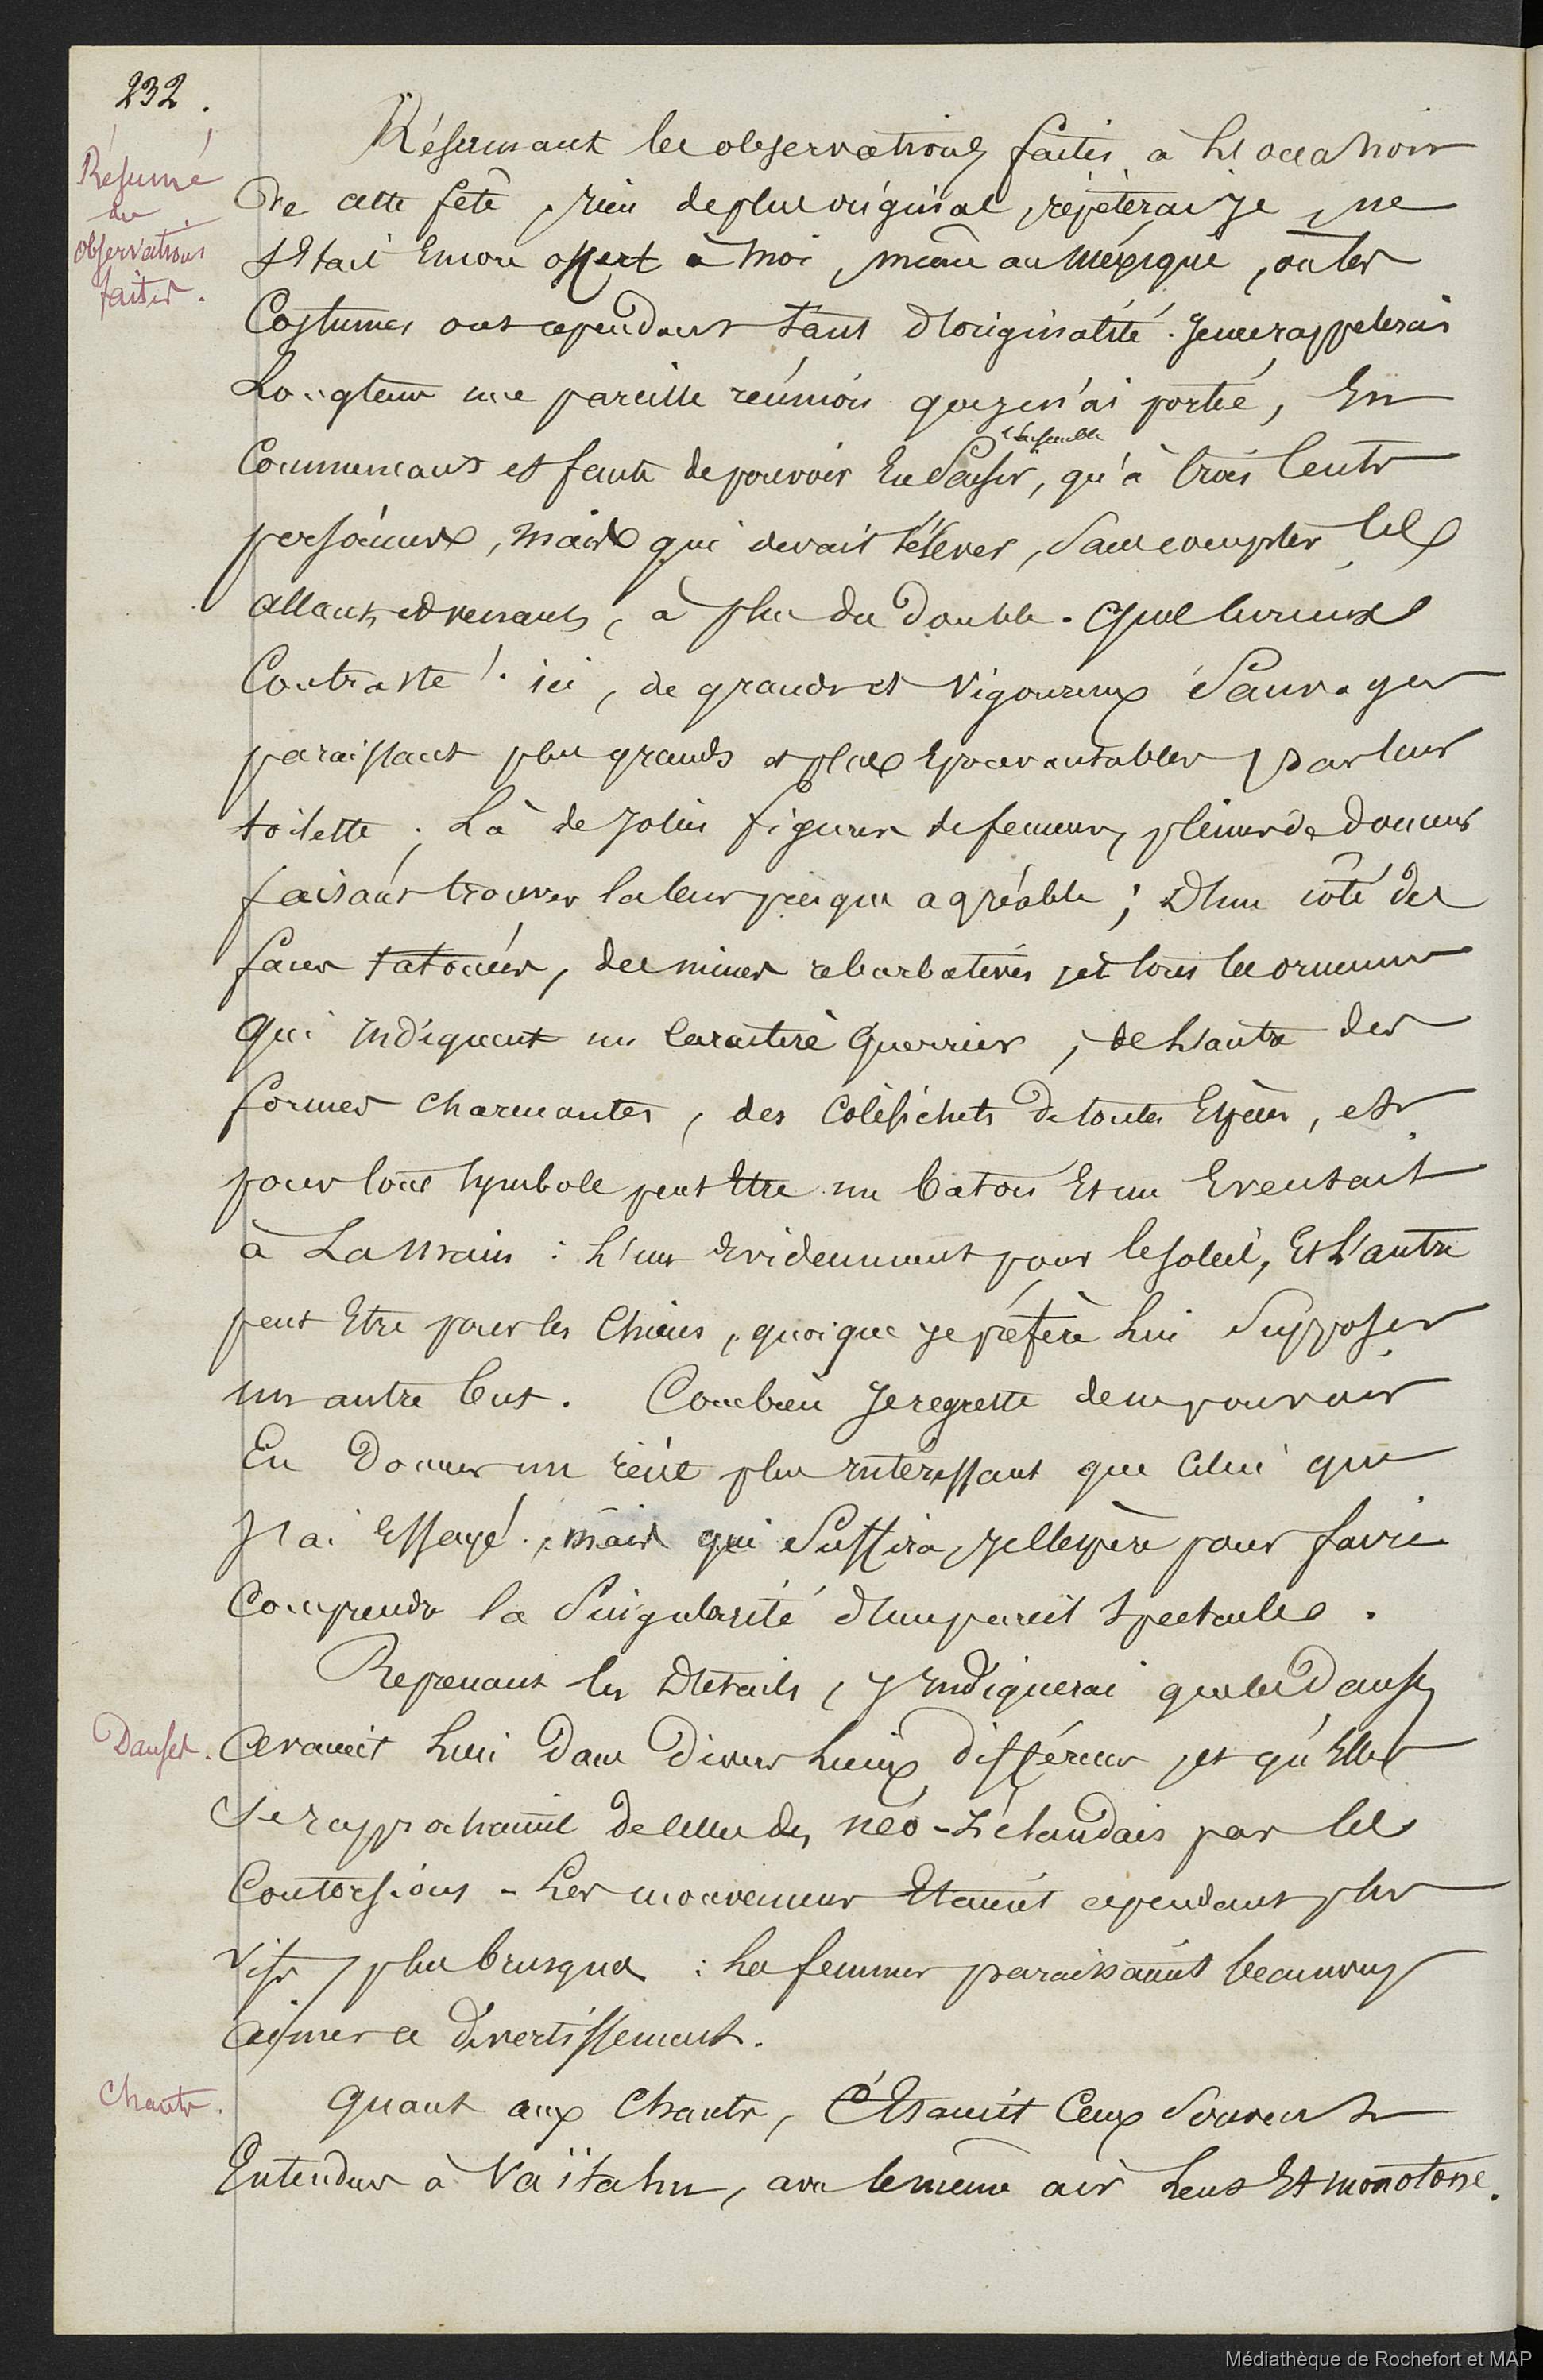 232.
Résumé
des
observations
faites.
Résumant les observations faites à l'occasion
de cette fête, rien de plus original, répèterai je, ne
s'était encore offert à moi, même au Méxique, où les
Costumes ont cependant tant d'originalité. Je me rappelerais
Longtems une pareille réunion que je n'ai portée, En
Commencant et faute de pouvoir En saisir l'ensemble, qu'à trois Cents
personnes, mais qui devait s'élever, sans compter les
allants et venants, à plus du double. Quel curieux
Contraste! ici, de grands et vigoureux Sauvages
paraissant plus grands et plus Epouvantables par leur
toilette; Là de jolies figures de femmes, pleines de douceur
faisant trouver la leur presque agréable; D'un côté des
faces tatouées, des mines rebarbatives et tous les ornemens
Qui Indiquent un Caractère Guerrier, de L'autre des
formes charmantes, des Colifichets de toutes Espèces, et
pour tout Symbole peut Etre un baton Et un Eventail
à La main: L'un Evidemment pour le soleil, Et L'autre
peut Etre pour les Chiens, quoique je préfère Lui Supposer
un autre but. Combien Je regrette de ne pouvoir
En Donner un récit plus intéressant que Celui que
J'ai Essayé, mais qui Suffira, j'espère pour faire
Comprendre la Singularité d'un pareil Spectacle.
Reprenant les Détails, J'Indiquerai que les Danses
Danses.
avaient Lieu Dans Divers Lieux différens, et qu'Elles
Se rapprochaient de celles des néo-Zélandais par les
Contorsions - Les mouvemens Etaient cependant plus
vifs, plus brusques: Les femmes paraissaient beaucoup
aimer ce divertissement.
Chants.
Quant aux Chants, C'Etaient Ceux Souvent
Entendus à Vaïtahu, avec le même air Lent Et monotone.
Médiathèque de Rochefort et MAP